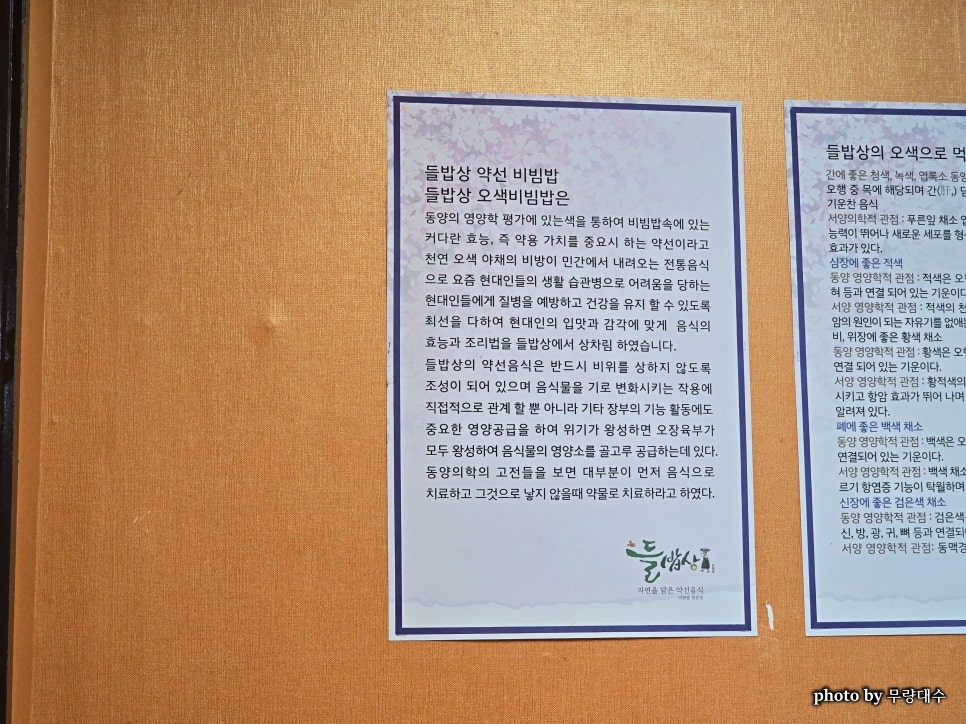 들밥상 약선 비빔밥
들밥상 오색비빔밥은
동양의 영양학 평가에 있는색을 통하여 비빔밥속에 있는
커다란 효능, 즉 약용 가치를 중요시 하는 약선이라고
천연 오색 야채의 비방이 민간에서 내려오는 전통음식
으로 요즘 현대인들의 생활 습관병으로 어려움을 당하는
현대인들에게 질병을 예방하고 건강을 유지 할 수 있도록
최선을 다하여 현대인의 입맛과 감각에 맞게 음식의
효능과 조리법을 들밥상에서 상차림 하였습니다.
들밥상의 약선음식은 반드시 비위를 상하지 않도록
조성이 되어 있으며 음식물을 기로 변화시키는 작용에
직접적으로 관계 할 뿐 아니라 기타 장부의 기능 활동에도
중요한 영양공급을 하여 위기가 왕성하면 오장육부가
모두 왕성하여 음식물의 영양소를 골고루 공급하는데 있다.
동양의학의 고전들을 보면 대부분이 먼저 음식으로
치료하고 그것으로 낳지 않을때 약물로 치료하라고 하였다.
들밥상
자연을 담은 약선음식
들밥상의 오색으로 먹
간에 좋은 청색, 녹색, 엽록소 동양
오행 중 목에 해당되며 간(肝,) 담
기운찬 음식
서양의학적 관점 : 푸른잎 채소 엽
능력이 뛰어나 새로운 세포를 형성
효과가 있다.
심장에 좋은 적색
동양 영양학적 관점 : 적색은 오행
혀 등과 연결 되어 있는 기운이다
서양 영양학적 관점 : 적색의 천
암의 원인이 되는 자유기를 없애는
비, 위장에 좋은 황색 채소
동양 영양학적 관점 : 황색은 오행
연결 되어 있는 기운이다.
서양 영양학적 관점 : 황적색의
시키고 항암 효과가 뛰어 나며
알려져 있다.
폐에 좋은 백색 채소
동양 영양학적 관점 : 백색은 오
연결되어 있는 기운이다.
서양 영양학적 관점 : 백색 채소
르기 항염증 기능이 탁월하며
신장에 좋은 검은색 채소
동양 영양학적 관점 : 검은색
신, 방, 광, 귀, 뼈 등과 연결되
서양 영양학적 관점: 동맥경
photo by 무량대수